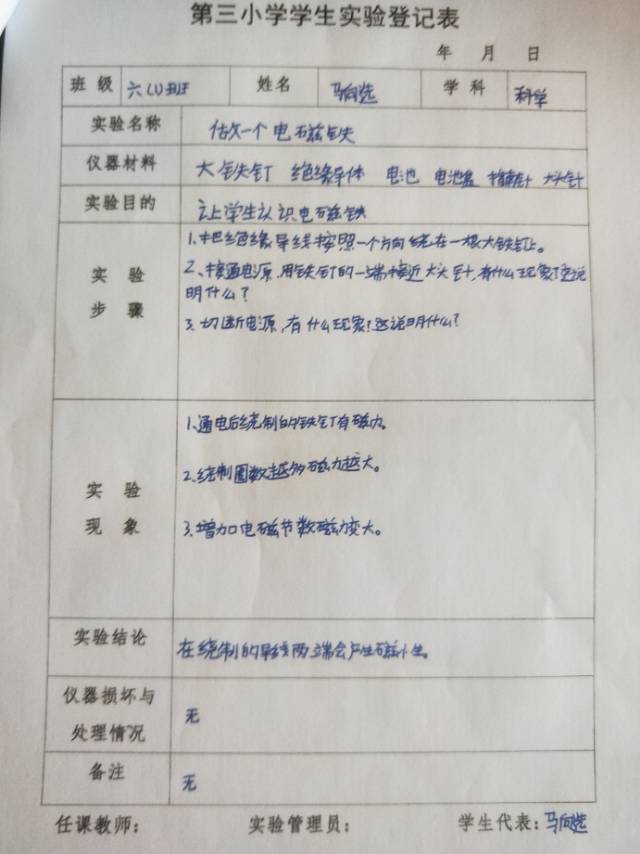 第三小学学生实验登记表
年 月 日
班级 六(1)班 姓名 马向选 学科 科学
实验名称 做一个电磁铁
仪器材料 大铁钉 绝缘导体 电池 电池盒 指南针 大头针
实验目的 让学生认识电磁铁
实验步骤
1.把绝缘导线按照一个方向绕在一根大铁钉上。
2.接通电源,用铁钉的一端接近大头针,有什么现象?这说
明什么?
3.切断电源,有什么现象?这说明什么?
实验现象
1.通电后绕制的铁钉有磁力。
2.绕制圈数越多磁力越大。
3.增加电磁节数磁力变大。
实验结论 在绕制的导线两端会产生磁性。
仪器损坏与处理情况 无
备注 无
任课教师: 实验管理员: 学生代表:马向选